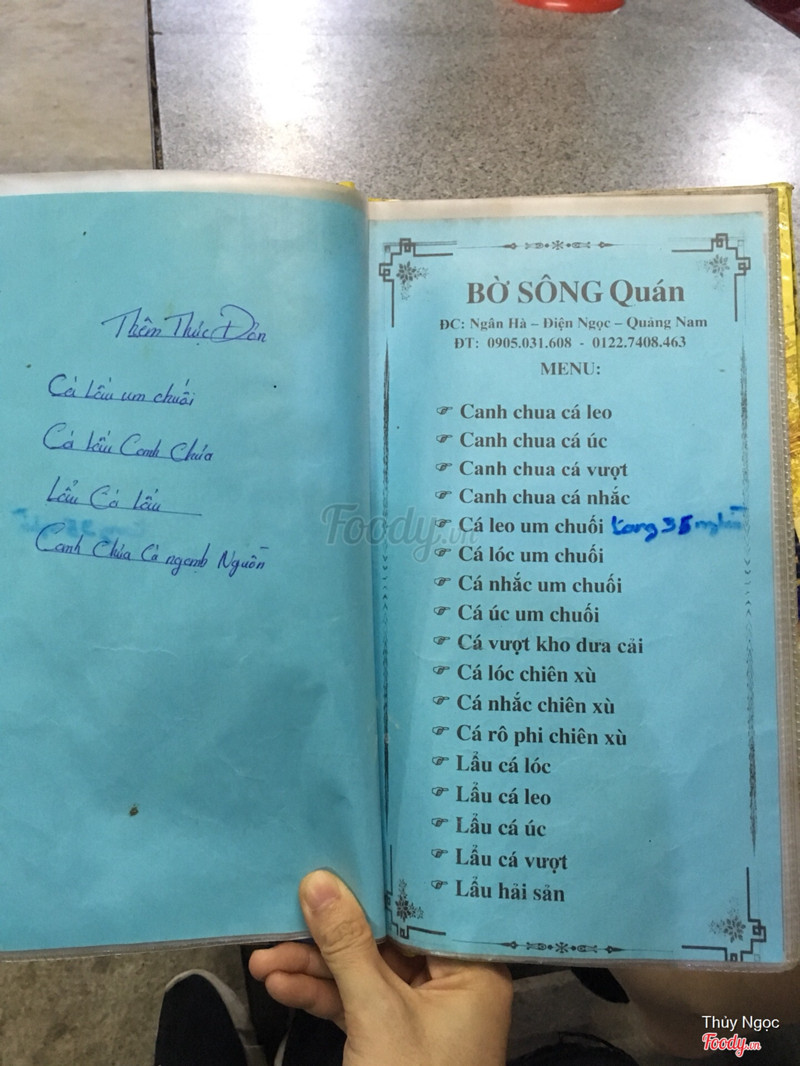 Thêm Thực Đơn
Cá lấu um chuối
Cá lấu Canh Chua
Lẩu Cá lấu
Canh Chua Cá ngạnh Nguồn
BỜ SÔNG Quán
ĐC: Ngân Hà – Điện Ngọc – Quảng Nam
ĐT: 0905.031.608 - 0122.7408.463
MENU:
☞ Canh chua cá leo
☞ Canh chua cá úc
☞ Canh chua cá vượt
☞ Canh chua cá nhắc
☞ Cá leo um chuối 35
☞ Cá lóc um chuối
☞ Cá nhắc um chuối
☞ Cá úc um chuối
☞ Cá vượt kho dưa cải
☞ Cá lóc chiên xù
☞ Cá nhắc chiên xù
☞ Cá rô phi chiên xù
☞ Lẩu cá lóc
☞ Lẩu cá leo
☞ Lẩu cá úc
☞ Lẩu cá vượt
☞ Lẩu hải sản
Foody.vn
Thủy Ngọc
Foody.vn